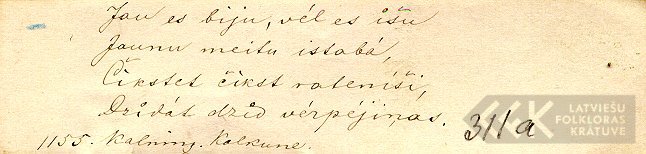 Jau es biju, vēl es išu
Jaunu meitu istabá,
Čikstet čikst rateniši,
Dzìdát dzìd vérpéjiņas.
1155. Kalniņ. Kalkune. 311a
LATVIEŠU
FOLKLORAS
KRĀTUVE